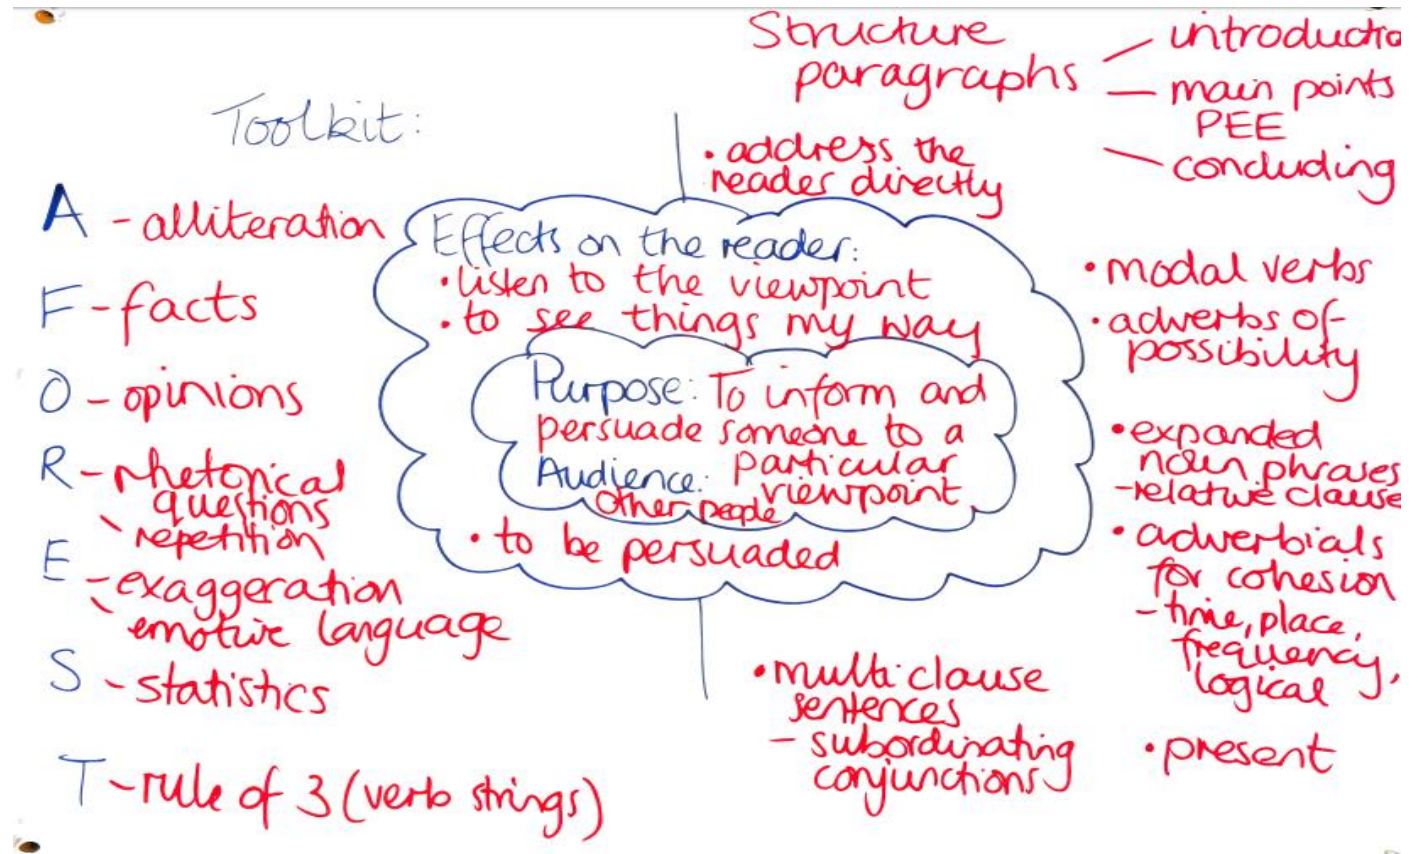 Toolkit:
A - alliteration
F - facts
O - opinions
R - rhetorical
questions
- repetition
E - exaggeration
- emotive language
S - statistics
T - rule of 3 (verb strings)
Structure
paragraphs
- introductio
- main points
PEE
- concluding
• address the
reader directly
Effects on the reader:
• listen to the viewpoint
• to see things my way
Purpose: To inform and
persuade someone to a
particular
viewpoint
Audience:
Other people
• to be persuaded
• modal verbs
• adverbs of
possibility
• expanded
noun phrases
- relative clause
• adverbials
for cohesion
- time, place,
frequency,
logical
• multi clause
sentences
- subordinating
conjunctions
• present